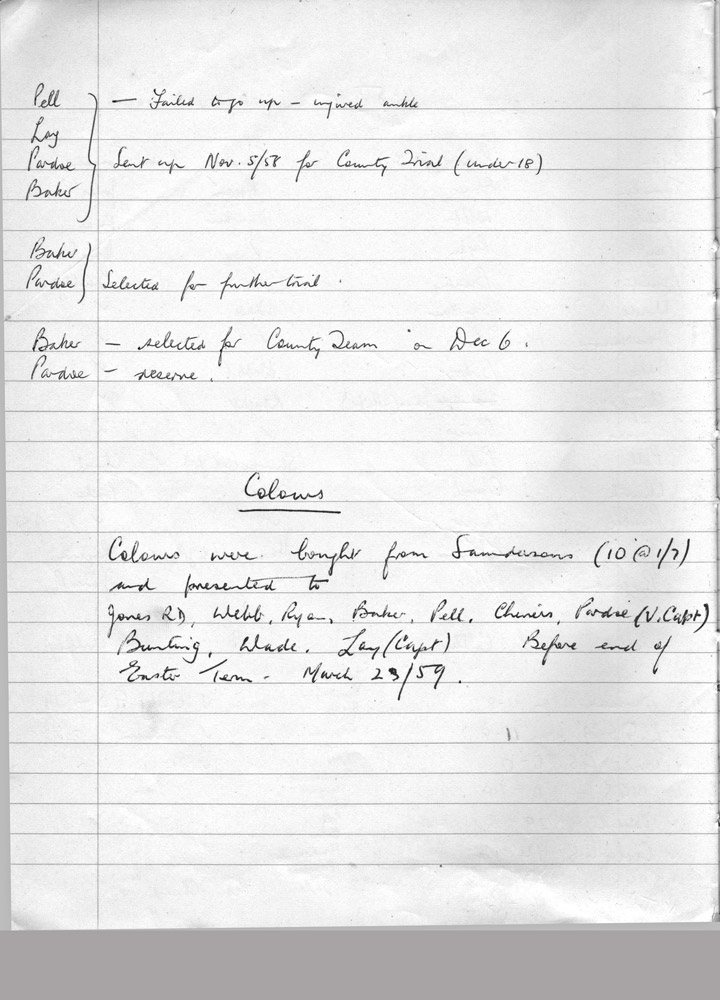 Pell — Failed to go up – injured ankle
Lay
Pardoe Sent up Nov. 5/58 for County Trial (under 18)
Baker
Baker
Pardoe Selected for further trial.
Baker – selected for County Team on Dec 6.
Pardoe – reserve.
Colours
Colours were bought from Saundersons (10 @ 1/7)
and presented to
Jones RD, Webb, Ryan, Baker, Pell, Pardoe (V. Capt)
Bunting, Wade, Lay (Capt) Before end of
Easter Term – March 23/59.